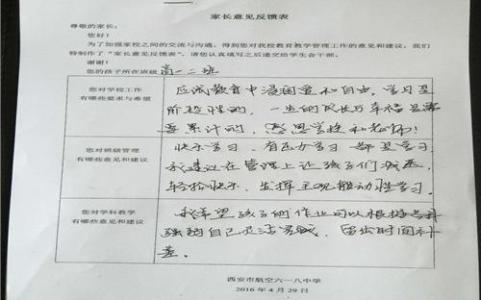 家长意见反馈表
尊敬的家长:
您好!
为了加强家校之间的交流与沟通,得到您对我校教育教学管理工作的意见和建议,我们
特制作了“家长意见反馈表”,请您认真填写之后递交给学生会干部。
谢谢!
您的孩子所在班级 高一二班
您对学校工作
有哪些要求与希望
应试教育中 和自由,学习是
阶段性的,一生的成长与幸福是需
要累计的,感恩学校和老师!
您对班级管理
有哪些意见和建议
快乐学习、有压力学习 都是学习
我建议在管理上让孩子们减压,
轻松快乐,发挥主观能动性学习。
您对学科教学
有哪些意见和建议
我希望孩子们作业可以根据
强弱自己 ,留出时间补
差。
西安市航空六一八中学
2016 年 4 月 29 日